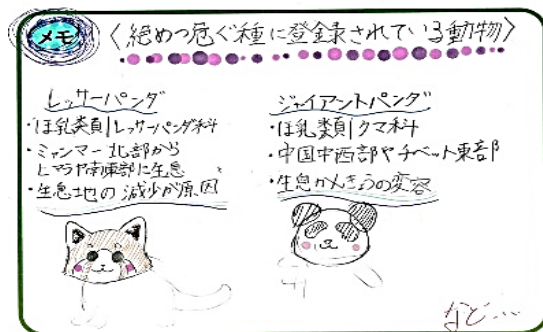 メモ
〈絶めつ危ぐ種に登録されている動物〉
レッサーパンダ
・ほ乳類|レッサーパンダ科
・ミャンマー北部から
ヒマラヤ南東部に生息
・生息地の減少が原因
ジャイアントパンダ
・ほ乳類|クマ科
・中国中西部やチベット東部
・生息かんきょうの変容
など…